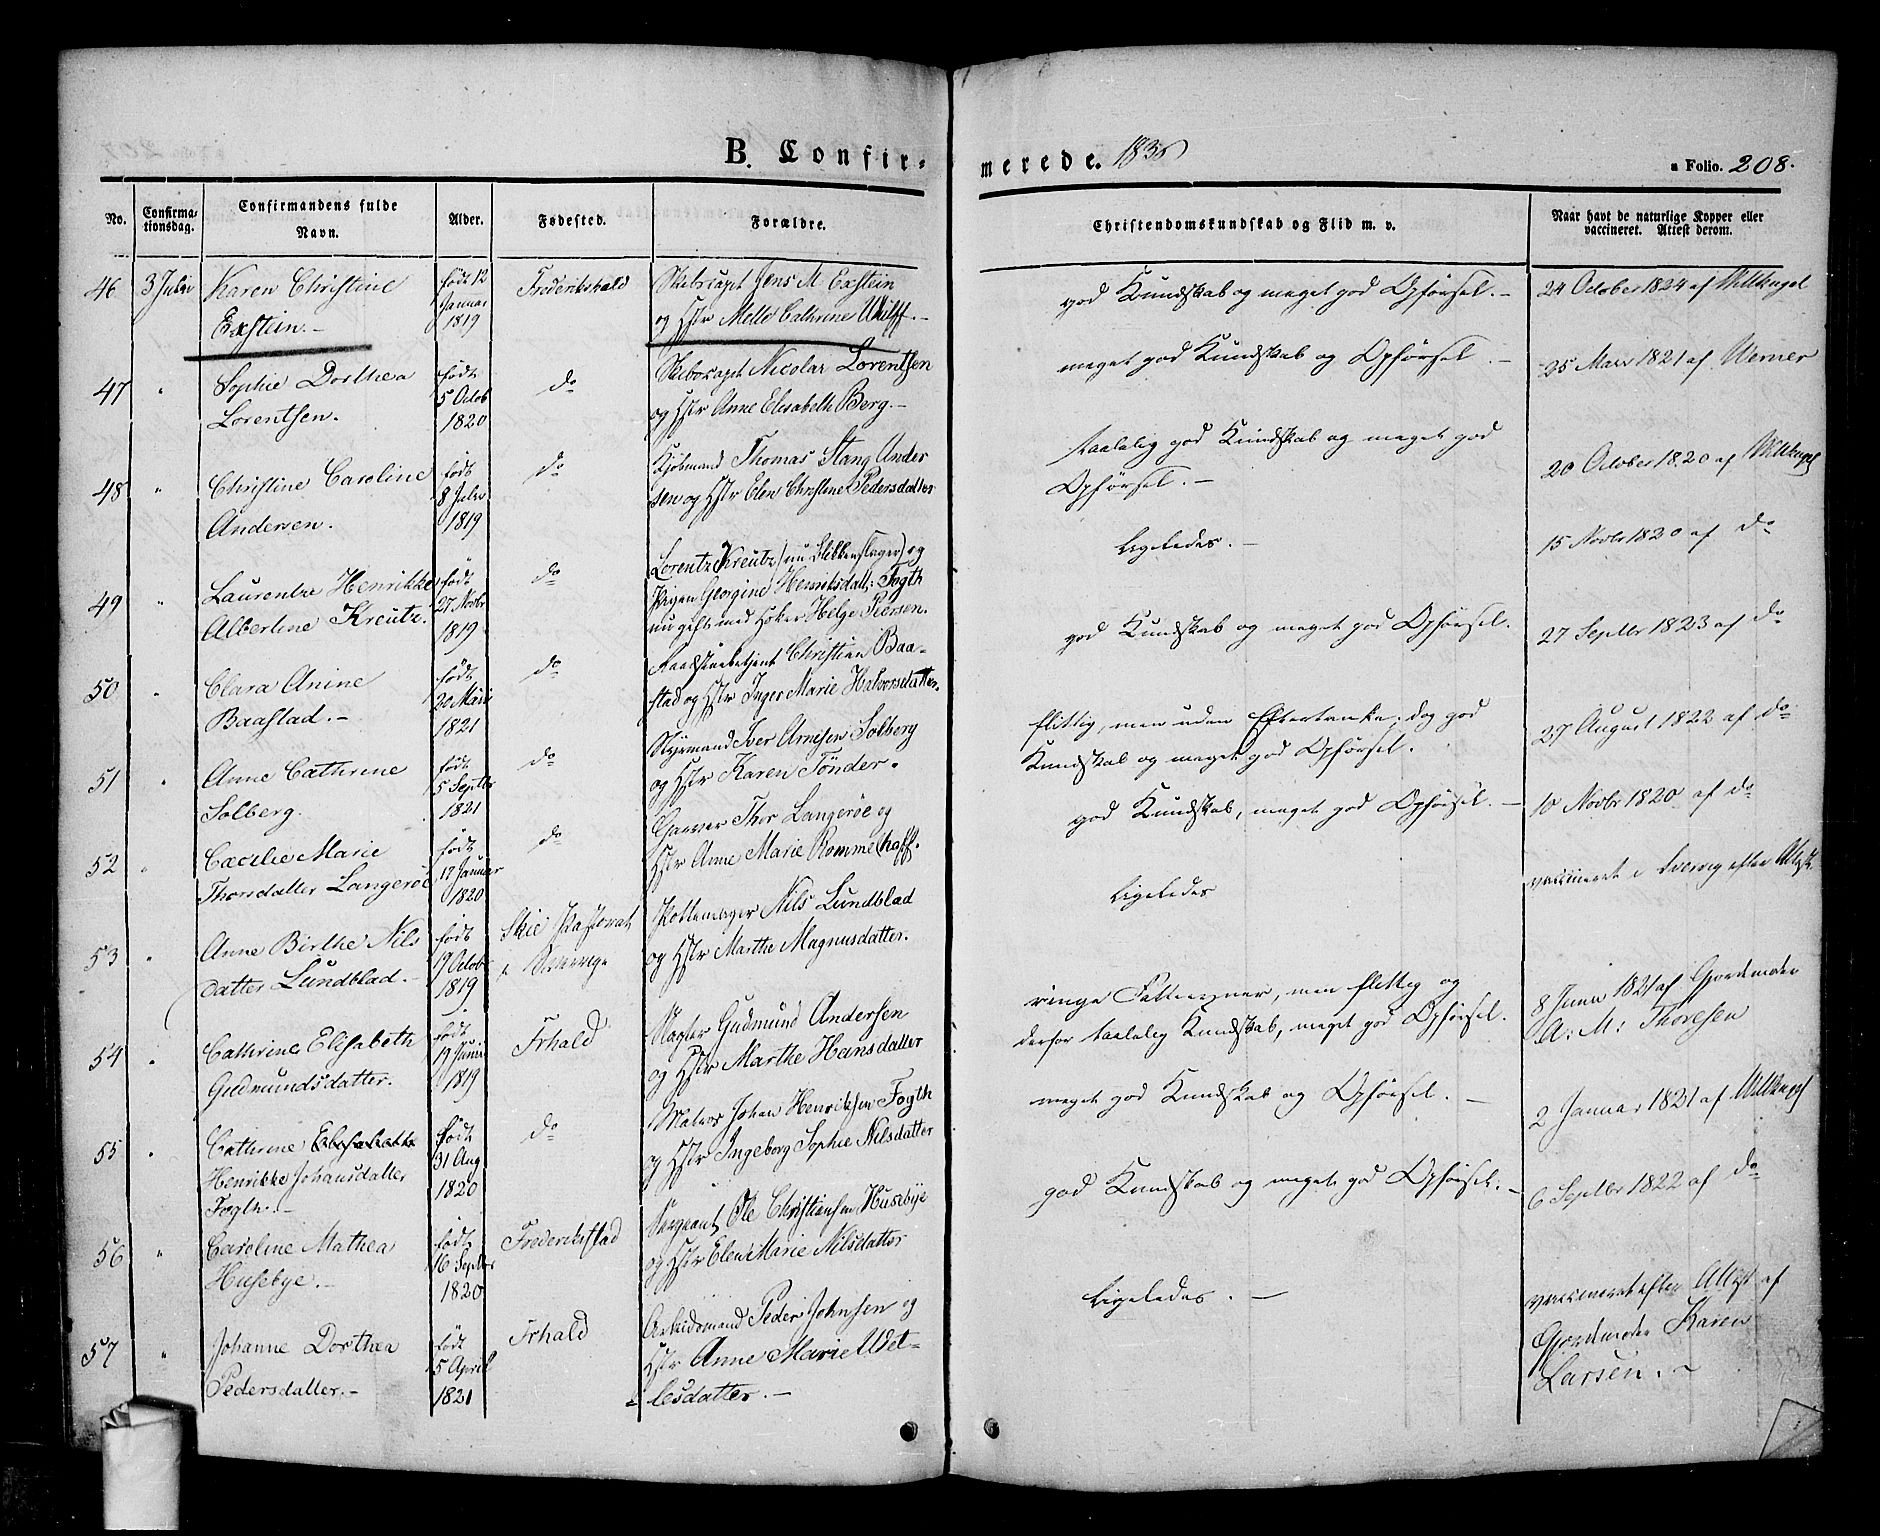 B. Confirmerede. 1836
Folio. 208.
No.
Confirmationsdag.
Confirmandens fulde Navn.
Alder.
Fødested.
Forældre.
Christendomskundskab og Flid m. v.
Naar havt de naturlige Kopper eller vaccineret. Attest derom.
46 3 Julii Karen Christine født 12 Frederikshald Skibscapt Jens M Exstein god Kundskab og meget god Opførsel. – 24 October 1824 af Willkugel
Exstein. – Januar 1819 og Hstr Mette Cathrine Wulff. –
47 " Sophie Dorthea født do Skibscapt Nicolai Lorentsen meget god Kundskab og Opførsel. – 25 Mars 1821 af Werner
Lorentsen. 5 Octob 1820 og Hstr Anne Elisabeth Berg. –
48 " Christine Caroline født do Kjøbmand Thomas Stang Ander taalelig god Kundskab og meget god 20 October 1820 af
Andersen. 8 Julii 1819 sen og Hstr Elen Christine Pedersdatter Opførsel. –
49 " Laurentze Henrikke født do Lorentz Kreutz (nu Blikkenslager) og Ligeledes. – 15 Novbr 1820 af do
Albertine Kreutz. 27 Novbr Pigen Georgine Henriksdatt: Fogth
1819 nu gift med Høker Helge Piersen.
50 " Clara Anine født do Raadstuebetjent Christian Baa- god Kundskab og meget god Opførsel. 27 Septbr 1823 af do
Baastad. – 20 Marts 1821 stad og Hstr Inger Marie Halvorsdatter.
51 " Anne Cathrine født do Styrmand Iver Arnesen Solberg flittig, men uden Eftertanke; dog god 27 August 1822 af do
Solberg. 5 Septbr 1821 og Hstr Karen Tønder. Kundskab og meget god Opførsel.
52 " Cæcilie Marie født do Garver Thor Langerøe og god Kundskab, meget god Opførsel. – 10 Novbr 1820 af do
Thorsdatter Langerøe 17 Januar 1820 Hstr Anne Marie Rommelhoff.
53 " Anne Birthe Nils født Skie Pastorat Pottemager Nils Lundblad Ligeledes vaccineret i Sverrig efter Attest
datter Lundblad. – 19 Octob 1819 i Sverrige og Hstr Marthe Magnusdatter.
54 " Cathrine Elisabeth født Frhald Slagter Gudmund Andersen ringe Fatteevner, men flittig og 8 Junii 1821 af Gjordmoder
Gudmundsdatter. 19 Junii 1819 og Hstr Marthe Hansdatter derfor taalelig Kundskab, meget god Opførsel. A: M: Thoresen
55 " Cathrine Elisabeth født do Matros Johan Henriksen Fogth meget god Kundskab og Opførsel. – 2 Januar 1821 af
Henrikke Johansdatter 31 Aug og Hstr Ingeborg Sophie Nilsdatter
Fogth. – 1820
56 " Caroline Mathea født Frederikstad Sergeant Ole Christiansen Husebye god Kundskab og meget god Opførsel. – 6 Septbr 1822 af do
Husebye. – 16 Septbr 1820 og Hstr Elen Marie Nilsdatter
57 " Johanne Dorthea født Frhald Arbeidsmand Peder Johnsen og Ligeledes. – vaccineret efter Attest af
Pedersdatter. – 5 April Hstr Anne Marie Udet- Gjordmoder Karen
1821 lesdatter. – Larsen. –